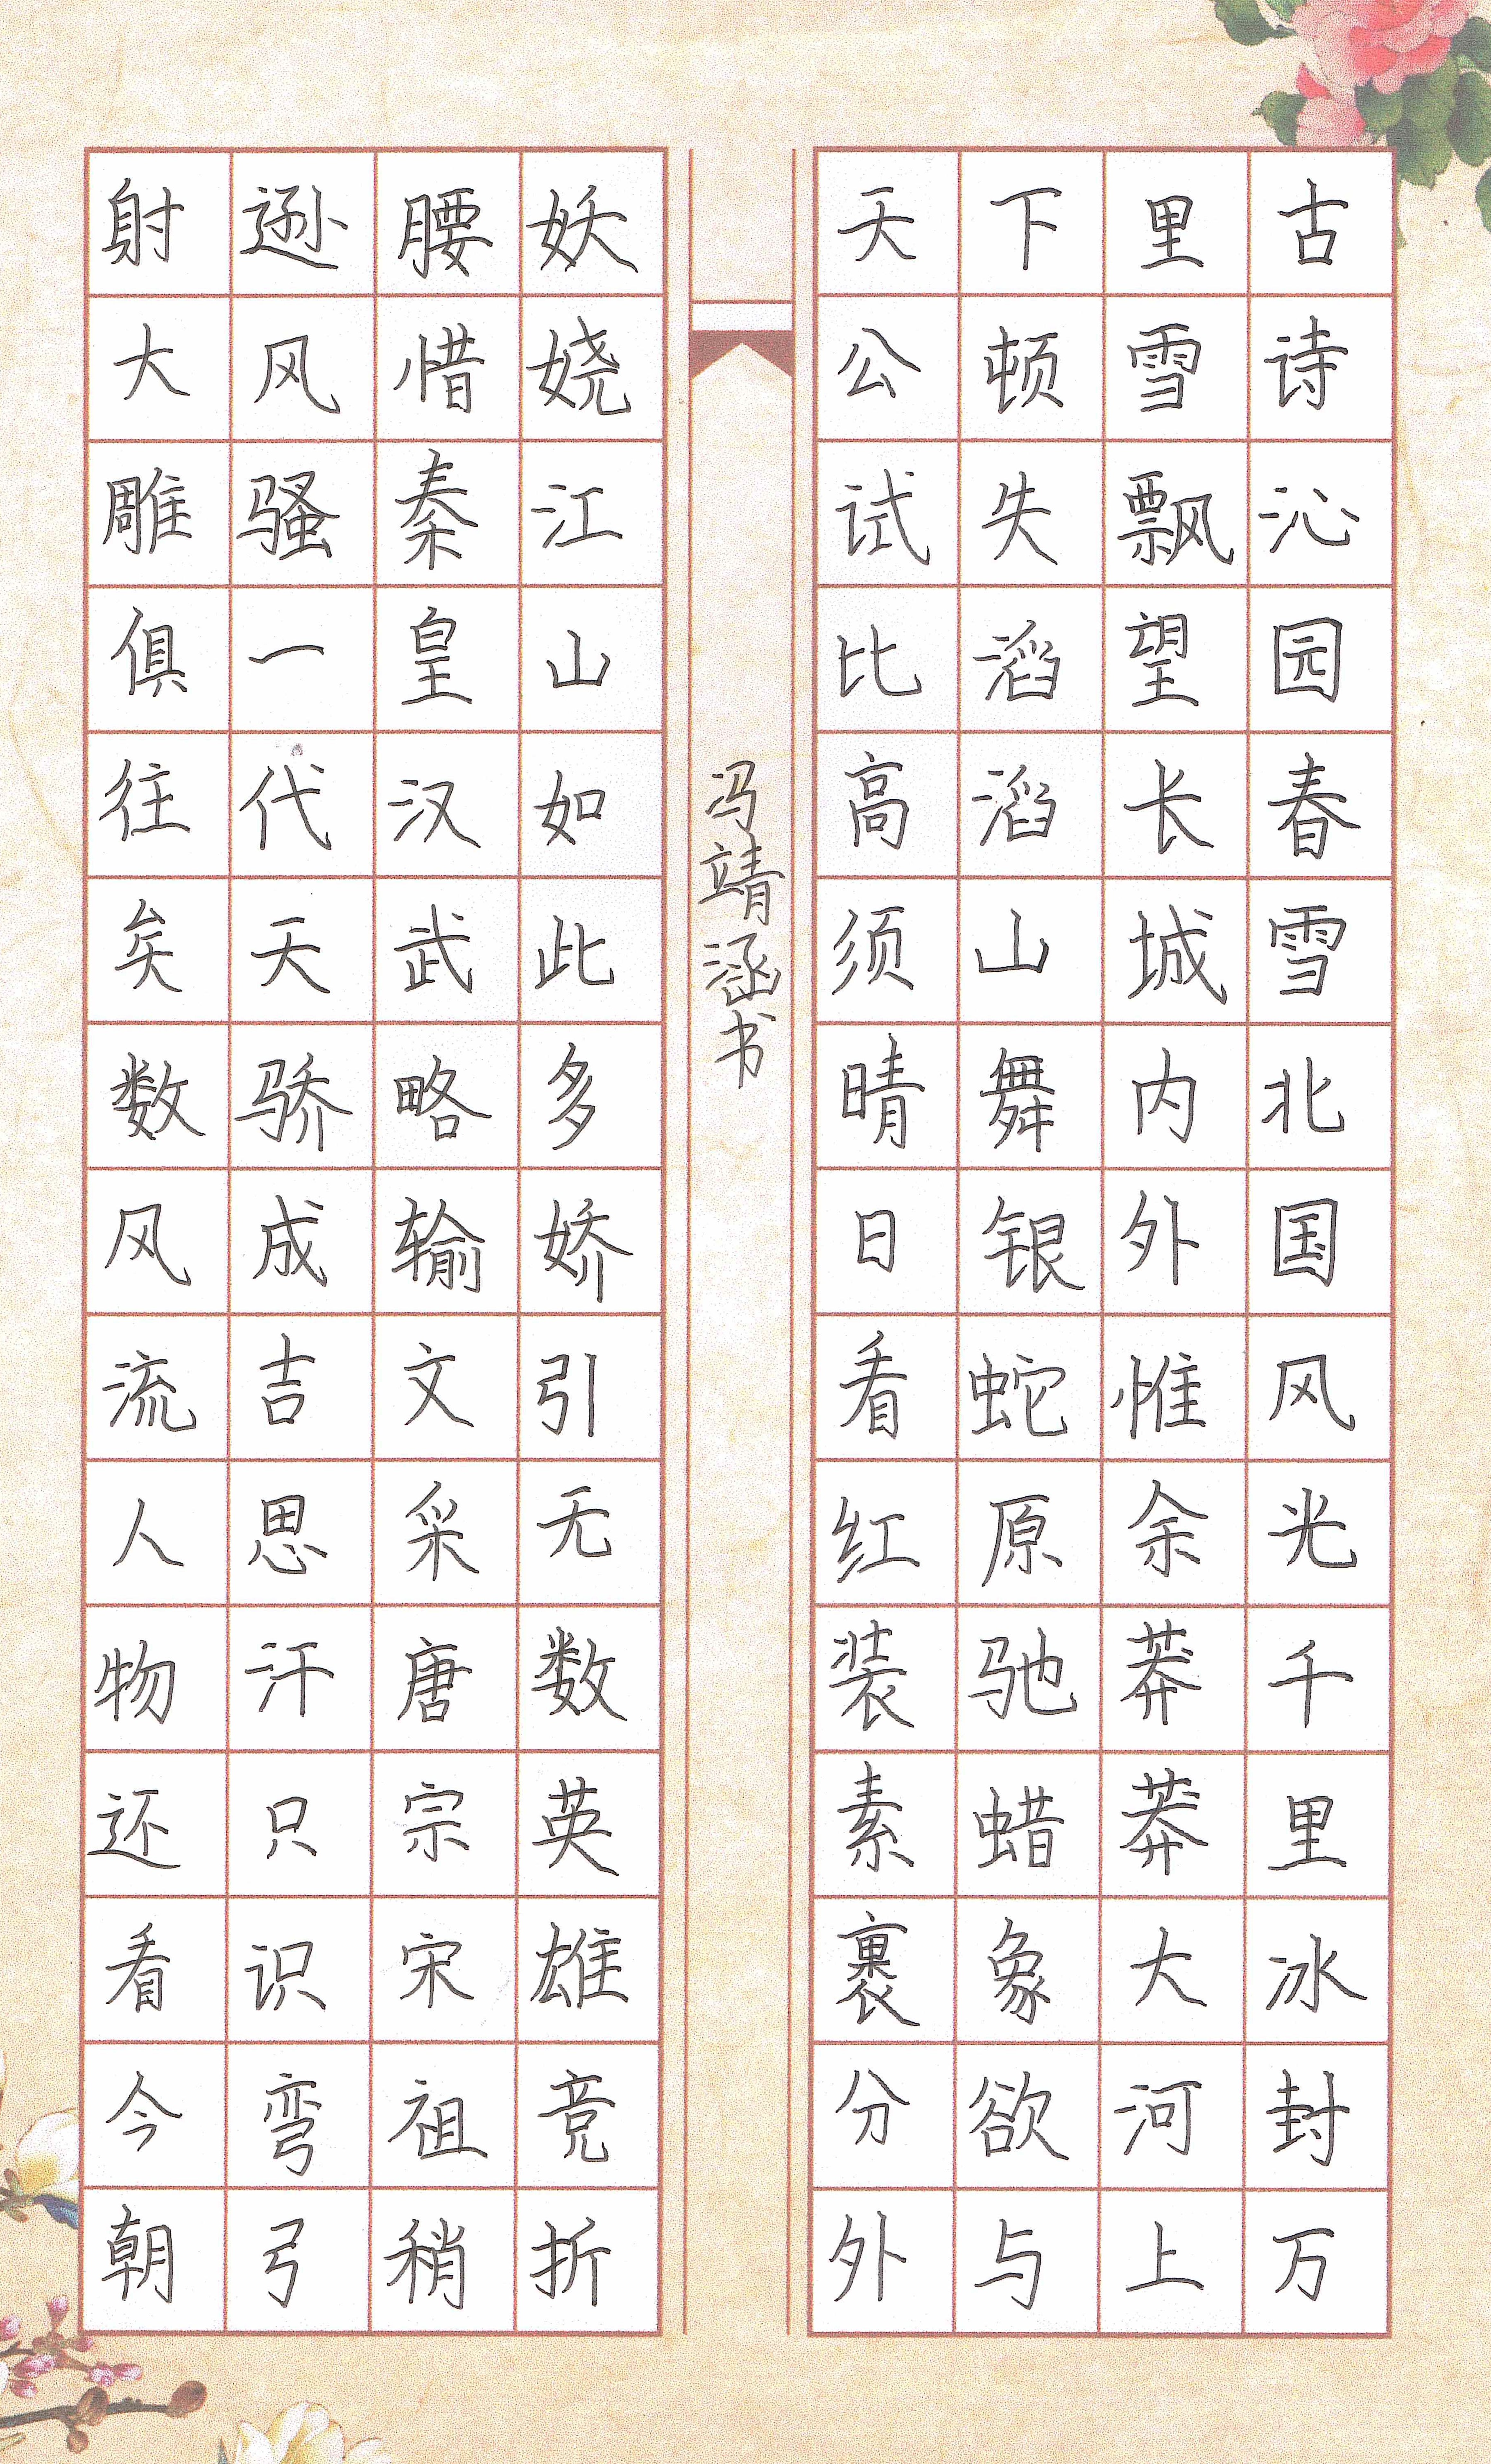 古诗沁园春雪北国风光千里冰封万
里雪飘望长城内外惟余莽莽大河上
下顿失滔滔山舞银蛇原驰蜡象欲与
天公试比高须晴日看红装素裹分外
冯靖涵书
妖娆江山如此多娇引无数英雄竞折
腰惜秦皇汉武略输文采唐宗宋祖稍
逊风骚一代天骄成吉思汗只识弯弓
射大雕俱往矣数风流人物还看今朝